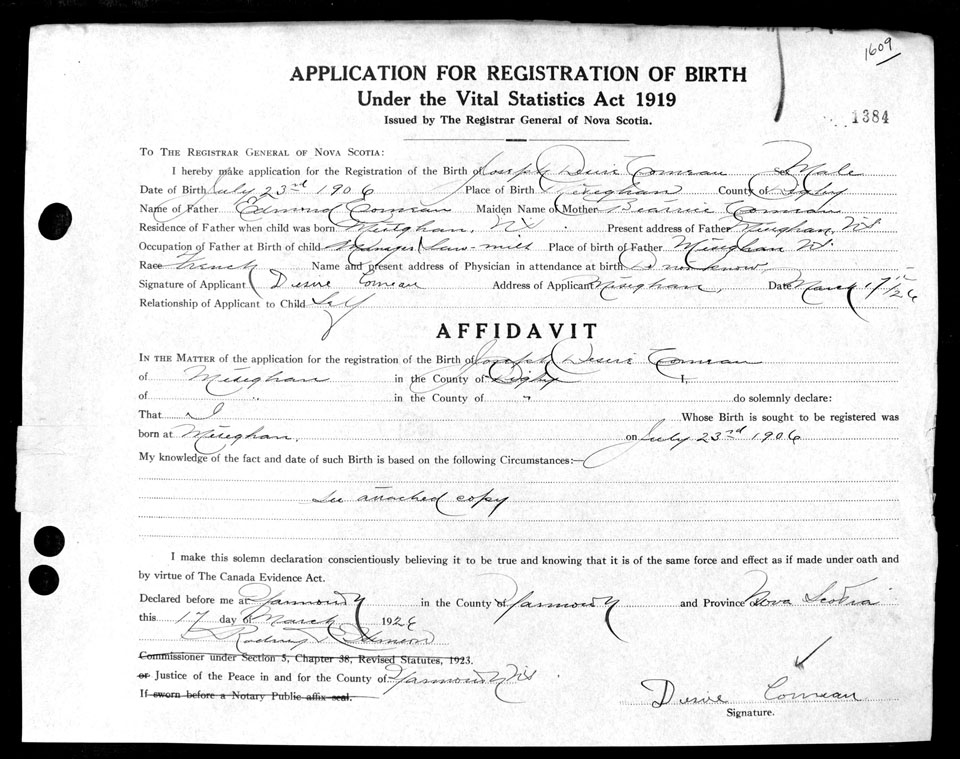 1609
APPLICATION FOR REGISTRATION OF BIRTH
Under the Vital Statistics Act 1919
Issued by The Registrar General of Nova Scotia.
1384
TO THE REGISTRAR GENERAL OF NOVA SCOTIA:
I hereby make application for the Registration of the Birth of Joseph Desire Comeau Sex Male
Date of Birth July 23rd 1906 Place of Birth Meteghan County of Digby
Name of Father Edmond Comeau Maiden Name of Mother Comeau
Residence of Father when child was born Meteghan, NS. Present address of Father Meteghan, NS
Occupation of Father at Birth of child Manager Saw-mill Place of birth of Father Meteghan NS
Race French Name and present address of Physician in attendance at birth Do not know
Signature of Applicant Desire Comeau Address of Applicant Meteghan, Date March 17/26
Relationship of Applicant to Child Self
AFFIDAVIT
IN THE MATTER of the application for the registration of the Birth of Joseph Desire Comeau
of Meteghan in the County of Digby I,
of " in the County of " do solemnly declare:
That I Whose Birth is sought to be registered was
born at Meteghan, on July 23rd 1906
My knowledge of the fact and date of such Birth is based on the following Circumstances:—
See attached copy
I make this solemn declaration conscientiously believing it to be true and knowing that it is of the same force and effect as if made under oath and
by virtue of The Canada Evidence Act.
Declared before me at Yarmouth in the County of Yarmouth and Province Nova Scotia
this 17 day of March 1926
Commissioner under Section 5, Chapter 38, Revised Statutes, 1923.
or Justice of the Peace in and for the County of Yarmouth NS
If sworn before a Notary Public affix seal.
Desire Comeau
Signature.